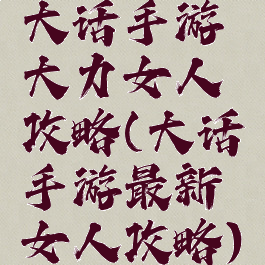 大话手游
大力女人
攻略(大话
手游最新
女人攻略)